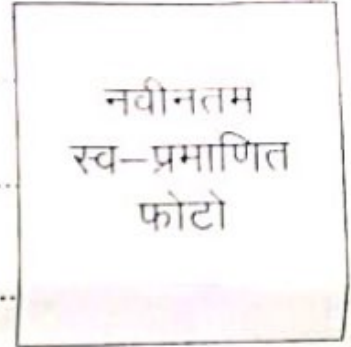 नवीनतम
स्व–प्रमाणित
फोटो